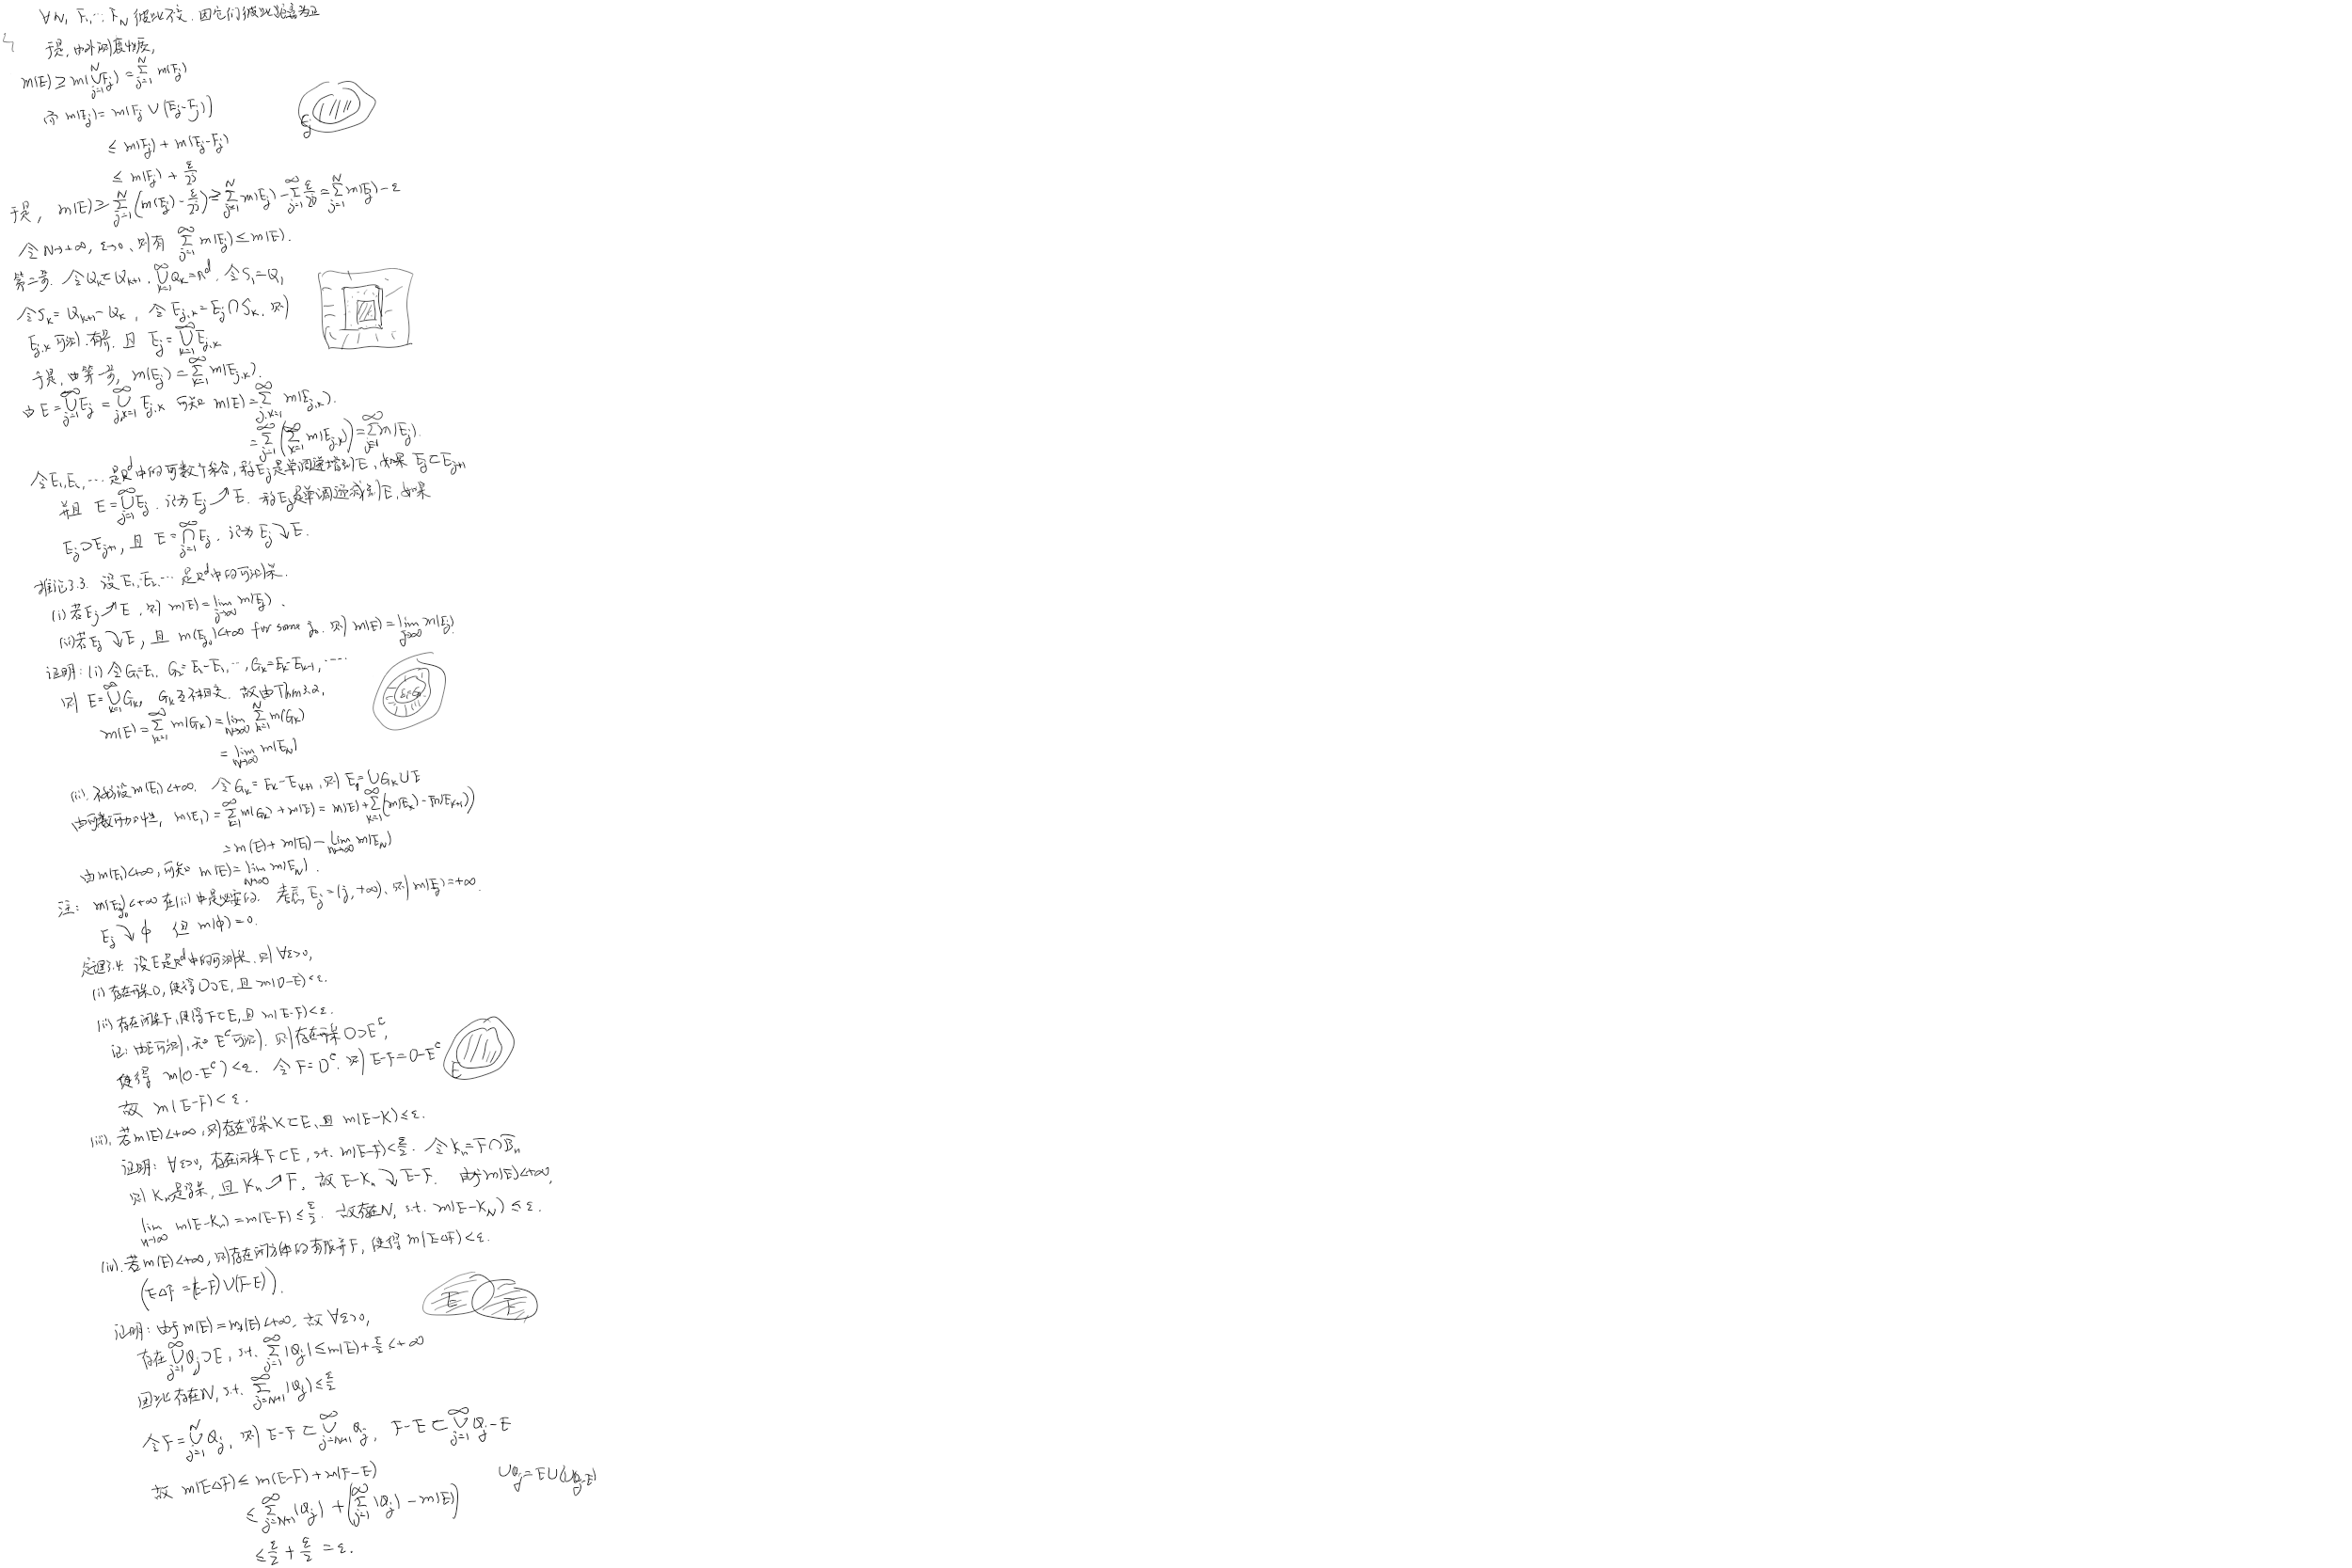 ∀N, F₁,…F_N 彼此不交. 因它们彼此距离为正
于是, 由外测度性质,
m(E) ≥ m(⋃_{j=1}^N F_j) = Σ_{j=1}^N m(F_j)
而 m(E_j) = m(F_j ∪ (E_j-F_j))
E_j
≤ m(F_j) + m(E_j-F_j)
≤ m(F_j) + ε/2^j
于是, m(E) ≥ Σ_{j=1}^N (m(E_j) - ε/2^j) ≥ Σ_{j=1}^N m(E_j) - Σ_{j=1}^∞ ε/2^j = Σ_{j=1}^N m(E_j) - ε
令 N→+∞, ε→0, 则有 Σ_{j=1}^∞ m(E_j) ≤ m(E).
第二步. 令 Q_k ⊂ Q_{k+1}, ⋃_{k=1}^∞ Q_k = R^d. 令 S₁=Q₁
令 S_k = Q_{k+1} - Q_k, 令 E_{j,k} = E_j ∩ S_k. 则
E_{j,k} 可测.有界. 且 E_j = ⋃_{k=1}^∞ E_{j,k}
于是, 由第一步, m(E_j) = Σ_{k=1}^∞ m(E_{j,k}).
由 E = ⋃_{j=1}^∞ E_j = ⋃_{j,k=1}^∞ E_{j,k} 可知 m(E) = Σ_{j,k=1}^∞ m(E_{j,k}).
= Σ_{j=1}^∞ (Σ_{k=1}^∞ m(E_{j,k})) = Σ_{j=1}^∞ m(E_j).
令 E₁,E₂,… 是R^d中的可数个集合, 称E_j是单调递增到E, 如果 E_j ⊂ E_{j+1}
并且 E = ⋃_{j=1}^∞ E_j. 记为 E_j ↗ E. 称E_j是单调递减到E, 如果
E_j ⊃ E_{j+1}, 且 E = ⋂_{j=1}^∞ E_j. 记为 E_j ↘ E.
推论3.3. 设 E₁,E₂,… 是R^d中的可测集.
(i) 若 E_j ↗ E, 则 m(E) = lim_{j→∞} m(E_j).
(ii) 若 E_j ↘ E, 且 m(E_{j₀}) < +∞ for some j₀. 则 m(E) = lim_{j→∞} m(E_j)
证明: (i) 令 G₁=E₁, G₂=E₂-E₁, …, G_k=E_k-E_{k-1}, …
则 E = ⋃_{k=1}^∞ G_k, G_k 互不相交. 故由Thm3.2,
E₁=G₁
m(E) = Σ_{k=1}^∞ m(G_k) = lim_{N→∞} Σ_{k=1}^N m(G_k)
= lim_{N→∞} m(E_N)
(ii). 不妨设 m(E₁)<+∞. 令 G_k = E_k - E_{k+1}, 则 E₁ = ∪G_k ∪ E
由可数可加性, m(E₁) = Σ_{k=1}^∞ m(G_k) + m(E) = m(E) + Σ_{k=1}^∞ (m(E_k) - m(E_{k+1}))
= m(E) + m(E₁) - lim_{N→∞} m(E_N)
由 m(E₁)<+∞, 可知 m(E) = lim_{N→∞} m(E_N).
注: m(E_{j₀})<+∞ 在(ii)中是必要的. 考虑 E_j = (j, +∞), 则 m(E_j) = +∞.
E_j ↘ ϕ 但 m(ϕ) = 0.
定理3.4. 设 E 是R^d中的可测集. 则 ∀ε>0,
(i) 存在开集O, 使得 O⊃E, 且 m(O-E) < ε.
(ii) 存在闭集F, 使得 F⊂E, 且 m(E-F) < ε.
证: 由E可测, 知 E^c 可测. 则存在开集 O⊃E^c,
使得 m(O-E^c) < ε. 令 F=O^c. 则 E-F = O-E^c
E
故 m(E-F) < ε.
(iii). 若 m(E)<+∞, 则存在紧集 K⊂E, 且 m(E-K) ≤ ε.
证明: ∀ε>0, 存在闭集 F⊂E, s.t. m(E-F) < ε/2. 令 K_n = F ∩ B̄_n
则 K_n 是紧集, 且 K_n ↗ F, 故 E-K_n ↘ E-F. 由于 m(E)<+∞,
lim_{n→∞} m(E-K_n) = m(E-F) ≤ ε/2. 故存在N, s.t. m(E-K_N) ≤ ε.
(iv). 若 m(E)<+∞, 则存在闭方体的有限并 F, 使得 m(E△F) < ε.
(E△F = (E-F)∪(F-E)).
E F
证明: 由于 m(E) = m_*(E) < +∞, 故 ∀ε>0,
存在 ⋃_{j=1}^∞ Q_j ⊃ E, s.t. Σ_{j=1}^∞ |Q_j| ≤ m(E) + ε/2 < +∞
因此存在N, s.t. Σ_{j=N+1}^∞ |Q_j| ≤ ε/2
令 F = ⋃_{j=1}^N Q_j, 则 E-F ⊂ ⋃_{j=N+1}^∞ Q_j, F-E ⊂ ⋃_{j=1}^∞ Q_j - E
故 m(E△F) ≤ m(E-F) + m(F-E)
∪Q_j = E∪(∪Q_j-E)
≤ Σ_{j=N+1}^∞ |Q_j| + (Σ_{j=1}^∞ |Q_j| - m(E))
≤ ε/2 + ε/2 = ε.